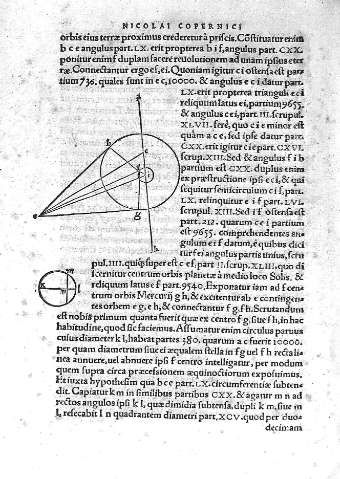 NICOLAI COPERNICI
orbis eius terræ proximus crederetur à priscis. Cõstituatur enim
b c e angulus part. LX. erit propterea b i f, angulus part. CXX.
ponitur enim f duplam facere reuolutionem ad unam ipsius e ter
ræ. Connectantur ergo e f, e i. Quoniam igitur c i ostensa est par
tium 736. quales sunt in e c, 10000. & angulus e c i datur part.
LX. erit propterea trianguli e c i
reliquum latus e i, partium 9655.
& angulus c e i, part. III. scrupul.
XLVII. ferè, quo c i e minor est
quàm a c e, sed ipse datur part.
CXX. erit igitur c i e part. CXVI.
scrup. XIII. Sed & angulus f i b
partium est CXX. duplus enim
ex præstructione ipsi e c i, & qui
sequitur semicirculum c i f, part.
LX. relinquitur e i f part. LVI.
scrupul. XIII. Sed i f ostensa est
part. 212. quarum c e i partium
est 9655. comprehendentes an-
gulum e i f datum, è quibus dici
tur f e i angulus partis unius, scru
pul. IIII. quib superest c e f, part. II. scrup. XLIII. quo di
scernitur centrum orbis planetæ à medio loco Solis, &
reliquum latus e f part. 9540. Exponatur iam ad f cen
trum orbis Mercurij g h, & excitentur ab e contingen-
tes orbem e g, e h, & connectantur f g, f h. Scrutandum
est nobis primum quanta fuerit quæ ex centro f g, siue f h, in hac
habitudine, quod sic faciemus. Assumatur enim circulus paruus
cuius diameter k l, habeat partes 380. quarum a c fuerit 10000.
per quam diametrum siue ei æqualem stella in f g uel f h rectali-
nea annuere, uel abnuere ipsi f centro intelligatur, per modum
quem supra circa præcessionem æquinoctiorum exposuimus.
Et iuxta hypothesim qua b c e part. LX. circumferentiæ subten-
dit. Capiatur k m in similibus partibus CXX. & agatur m n ad
rectos angulos ipsi k l, quæ dimidia subtensa, dupli k m, siue m
l, resecabit l n quadrantem diametri part, XCV. quod per duo-
decimam